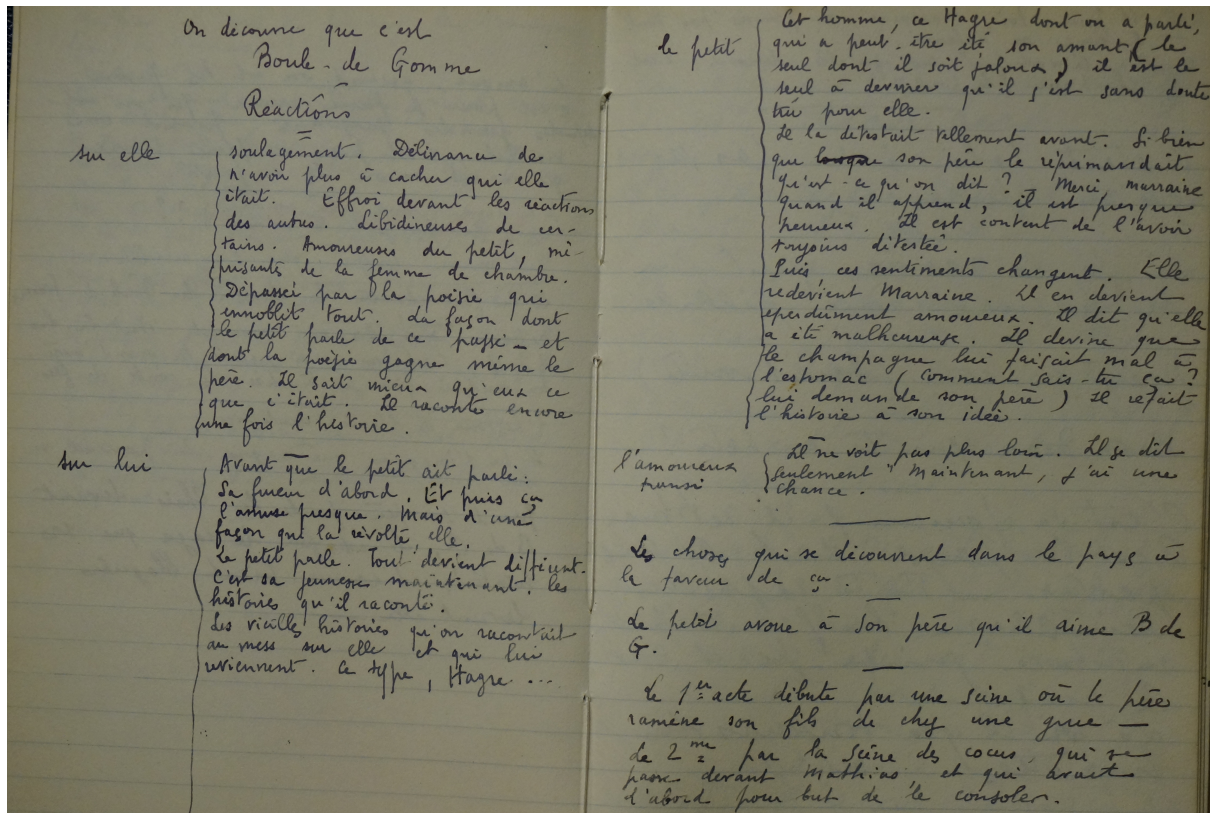 On découvre que c'est
Boule-de Gomme
Réactions
sur elle
soulagement. Délivrance de
n'avoir plus à cacher qui elle
était. Effroi devant les réactions
des autres. Libidineuses de cer-
tains. Amoureuses du petit, mé-
prisantes de la femme de chambre.
Dépassé par la poésie qui
ennoblit tout. La façon dont
le petit parle de ce passé - et
dont la poésie gagne même le
père. Il sait mieux qu'eux ce
que c'était. Il raconte encore
une fois l'histoire.
sur lui
Avant que le petit ait parlé :
Sa fureur d'abord. Et puis ça
l'amuse presque. Mais d'une
façon qui la révolte, elle.
Le petit parle. Tout devient différent.
C'est sa jeunesse maintenant, les
histoires qu'il raconte.
Les vieilles histoires qu'on racontait
au mess sur elle et qui lui
reviennent. Ce type, Hagre ...
le petit
Cet homme, ce Hagre dont on a parlé,
qui a peut-être été son amant (le
seul dont il soit jaloux) il est le
seul à deviner qu'il s'est sans doute
tué pour elle.
Il la détestait tellement avant. Si bien
que son père le réprimandait
Qu'est-ce qu'on dit ? Merci, marraine
quand il apprend, il est presque
heureux. Il est content de l'avoir
toujours détestée.
Puis, ces sentiments changent. Elle
redevient Marraine. Il en devient
éperdûment amoureux. Il dit qu'elle
a été malheureuse. Il devine que
le champagne lui faisait mal à
l'estomac (comment sais-tu ça ?
lui demande son père) Il refait
l'histoire à son idée.
l'amoureux
transi
Il ne voit pas plus loin. Il se dit
seulement "Maintenant, j'ai une
chance.
Les choses qui se découvrent dans le pays à
la faveur de ça.
Le petit avoue à son père qu'il aime B de
G.
Le 1er acte débute par une scène où le père
ramène son fils de chez une grue -
Le 2me par la scène des cocus, qui se
passe devant Mathias, et qui avait
d'abord pour but de le consoler.